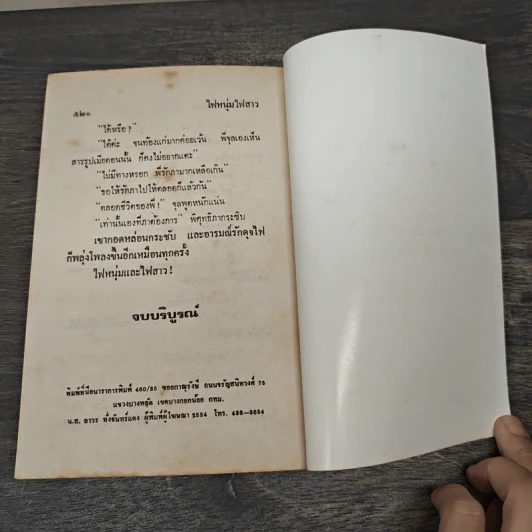 ๕๒๐
ไฟหนุ่มไฟสาว
"ได้หรือ?"
"ได้ค่ะ จนท้องแก่มากค่อยเว้น พี่จุลเองเห็น
สารรูปเมื่อตอนนั้น ก็คงไม่อยากแตะ"
"ไม่มีทางหรอก พี่รักภามากเหลือเกิน"
"ขอให้รักภาไปให้ตลอดก็แล้วกัน"
"ตลอดชีวิตของพี่!" จุลพูดหนักแน่น
"เท่านั้นเองที่ภาต้องการ" พิศุทธิภากระซิบ
เขากอดหล่อนกระชับ และอารมณ์รักดุจไฟ
ก็พลุ่งโพลงขึ้นอีกเหมือนทุกครั้ง
ไฟหนุ่มและไฟสาว!
จบบริบูรณ์
พิมพ์ที่นีลนาราการพิมพ์ 460/25 ซอยภาณุรังษี ถนนจรัญสนิทวงศ์ 75
แขวงบางพลัด เขตบางกอกน้อย กทม.
น.ส. ถาวร ทั่งจันทร์แดง ผู้พิมพ์ผู้โฆษณา 2524 โทร.